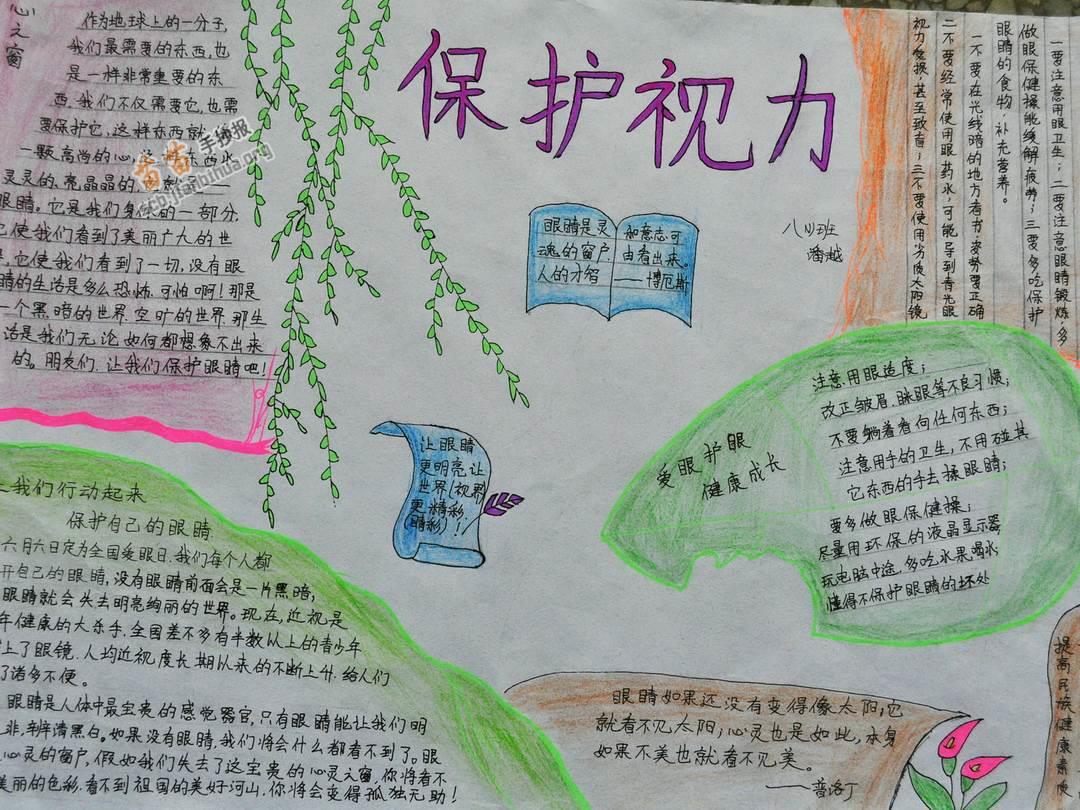 保护视力
八(1)班
潘越
心之窗
作为地球上的一分子,
我们最需要的东西,也
是一样非常重要的东
西.我们不仅需要它,也需
要保护它,这样东西就
一颗高尚的心,
灵灵的.亮晶晶的.
眼睛。它是我们身体的一部分,
它使我们看到了美丽广大的世
界.它使我们看到了一切,没有眼
睛的生活是多么恐怖.可怕啊!那是
一个黑暗的世界.空旷的世界.那生
活是我们无论如何都想象不出来
的。朋友们.让我们保护眼睛吧!
眼睛是灵
魂的窗户
人的才智
和意志可
由看出来。
——博厄斯
一要注意用眼卫生;二要注意眼睛锻炼,多
做眼保健操能缓解疲劳;三要多吃保护
眼睛的食物,补充营养。
一不要在光线暗的地方看书姿势要正确
二不要经常使用眼药水,可能导到青光眼
视力受损,甚至致盲;三不要使用劣质太阳镜
让眼睛
更明亮让
世界(视界)
更精彩
(睛彩)!
爱眼护眼
健康成长
注意用眼适度;
改正皱眉.眯眼等不良习惯;
不要躺着看向任何东西;
注意用手的卫生,不用碰其
它东西的手去揉眼睛;
要多做眼保健操;
尽量用环保的液晶显示器
玩电脑中途,多吃水果喝水
懂得不保护眼睛的坏处
我们行动起来
保护自己的眼睛
六月六日定为全国爱眼日.我们每个人都
开自己的眼睛,没有眼睛前面会是一片黑暗,
眼睛就会失去明亮绚丽的世界。现在,近视是
年健康的大杀手.全国差不多有半数以上的青少年
上了眼镜.人均近视度长期以来的不断上升.给人们
了诸多不便。
眼睛是人体中最宝贵的感觉器官,只有眼睛能让我们明
非,辨清黑白。如果没有眼睛,我们将会什么都看不到了。眼
心灵的窗户,假如我们失去了这宝贵的心灵之窗,你将看不
美丽的色彩.看不到祖国的美好河山,你将会变得孤独无助!
眼睛如果还没有变得像太阳,它
就看不见太阳;心灵也是如此,本身
如果不美也就看不见美。
——普洛丁
提高民族健康素质
苗苗手抄报
scb.jianbihua.org